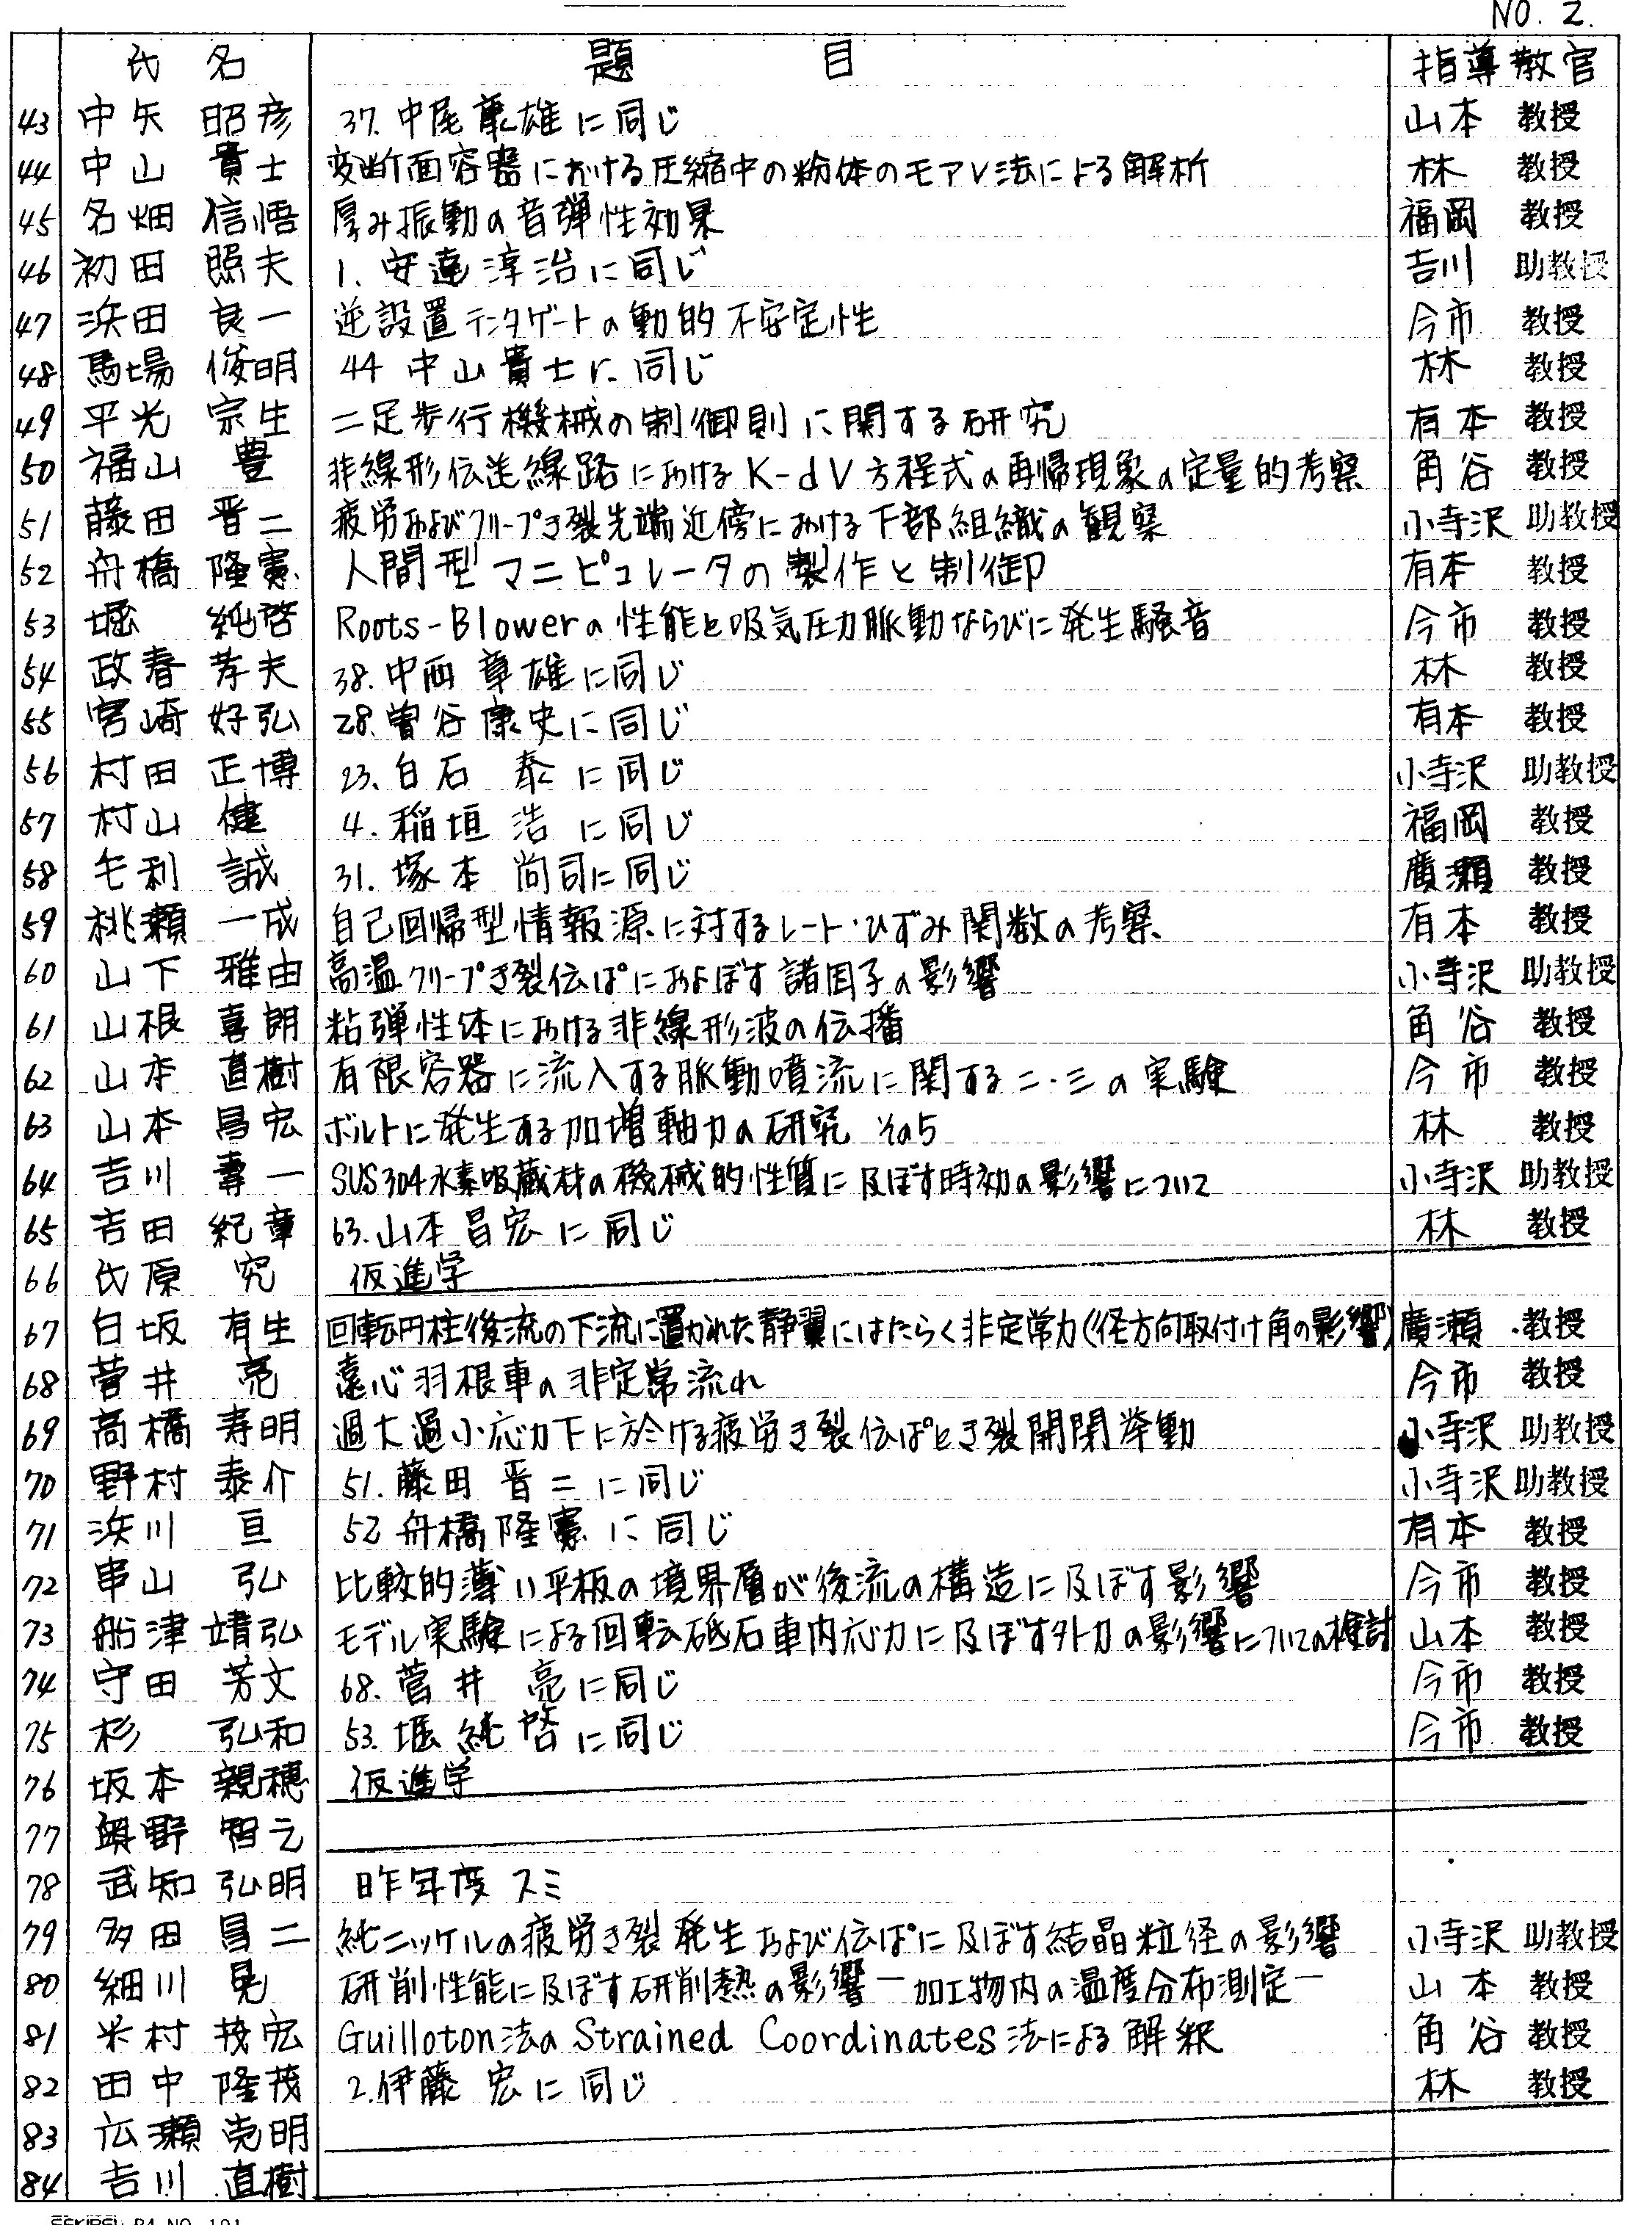 NO. 2.
氏 名 題 目 指導教官
43 中矢 昭彦 37. 中尾康雄に同じ 山本 教授
44 中山 貴士 変断面容器における圧縮中の粉体のモアレ法による解析 林 教授
45 名畑 信悟 厚み振動の音弾性効果 福岡 教授
46 初田 照夫 1. 安達淳治に同じ 吉川 助教授
47 浜田 良一 逆設置テンタゲートの動的不安定性 今市 教授
48 馬場 俊明 44 中山貴士に同じ 林 教授
49 平光 宗生 二足歩行機械の制御則に関する研究 有本 教授
50 福山 豊 非線形伝送線路におけるK-dV方程式の再帰現象の定量的考察 角谷 教授
51 藤田 晋二 疲労およびクリープき裂先端近傍における下部組織の観察 小寺沢 助教授
52 舟橋 隆憲 人間型マニピュレータの製作と制御 有本 教授
53 堀 純啓 Roots-Blowerの性能と吸気圧力脈動ならびに発生騒音 今市 教授
54 政春 孝夫 38. 中西章雄に同じ 林 教授
55 宮崎 好弘 28. 曽谷康史に同じ 有本 教授
56 村田 正博 23. 白石 泰に同じ 小寺沢 助教授
57 村山 健 4. 稲垣 浩に同じ 福岡 教授
58 毛利 誠 31. 塚本 尚司に同じ 廣瀬 教授
59 桃瀬 一成 自己回帰型情報源に対するレート・ひずみ関数の考察 有本 教授
60 山下 雅由 高温クリープき裂伝ぱにおよぼす諸因子の影響 小寺沢 助教授
61 山根 喜朗 粘弾性体における非線形波の伝播 角谷 教授
62 山本 直樹 有限容器に流入する脈動噴流に関する二・三の実験 今市 教授
63 山本 昌宏 ボルトに発生する加増軸力の研究 その5 林 教授
64 吉川 壽一 SUS304水素吸蔵材の機械的性質に及ぼす時効の影響について 小寺沢 助教授
65 吉田 紀章 63. 山本昌宏に同じ 林 教授
66 氏原 究 仮進学
67 白坂 有生 回転円柱後流の下流に置かれた静翼にはたらく非定常力(径方向取付け角の影響) 廣瀬 教授
68 菅井 亮 遠心羽根車の非定常流れ 今市 教授
69 高橋 寿明 過大過小応力下に於ける疲労き裂伝ぱとき裂開閉挙動 小寺沢 助教授
70 野村 泰介 51. 藤田 晋二に同じ 小寺沢 助教授
71 浜川 亘 52 舟橋隆憲に同じ 有本 教授
72 串山 弘 比較的薄い平板の境界層が後流の構造に及ぼす影響 今市 教授
73 船津 靖弘 モデル実験による回転砥石車内応力に及ぼす外力の影響についての検討 山本 教授
74 守田 芳文 68. 菅井 亮に同じ 今市 教授
75 杉 弘和 53. 堀 純啓に同じ 今市 教授
76 坂本 親穂 仮進学
77 奥野 智之
78 武知 弘明 昨年度スミ
79 多田 昌二 純ニッケルの疲労き裂発生および伝ぱに及ぼす結晶粒径の影響 小寺沢 助教授
80 細川 晃 研削性能に及ぼす研削熱の影響ー加工物内の温度分布測定ー 山本 教授
81 米村 茂宏 Guilloton法のStrained Coordinates法による解釈 角谷 教授
82 田中 隆茂 2. 伊藤 宏に同じ 林 教授
83 広瀬 克明
84 吉川 直樹